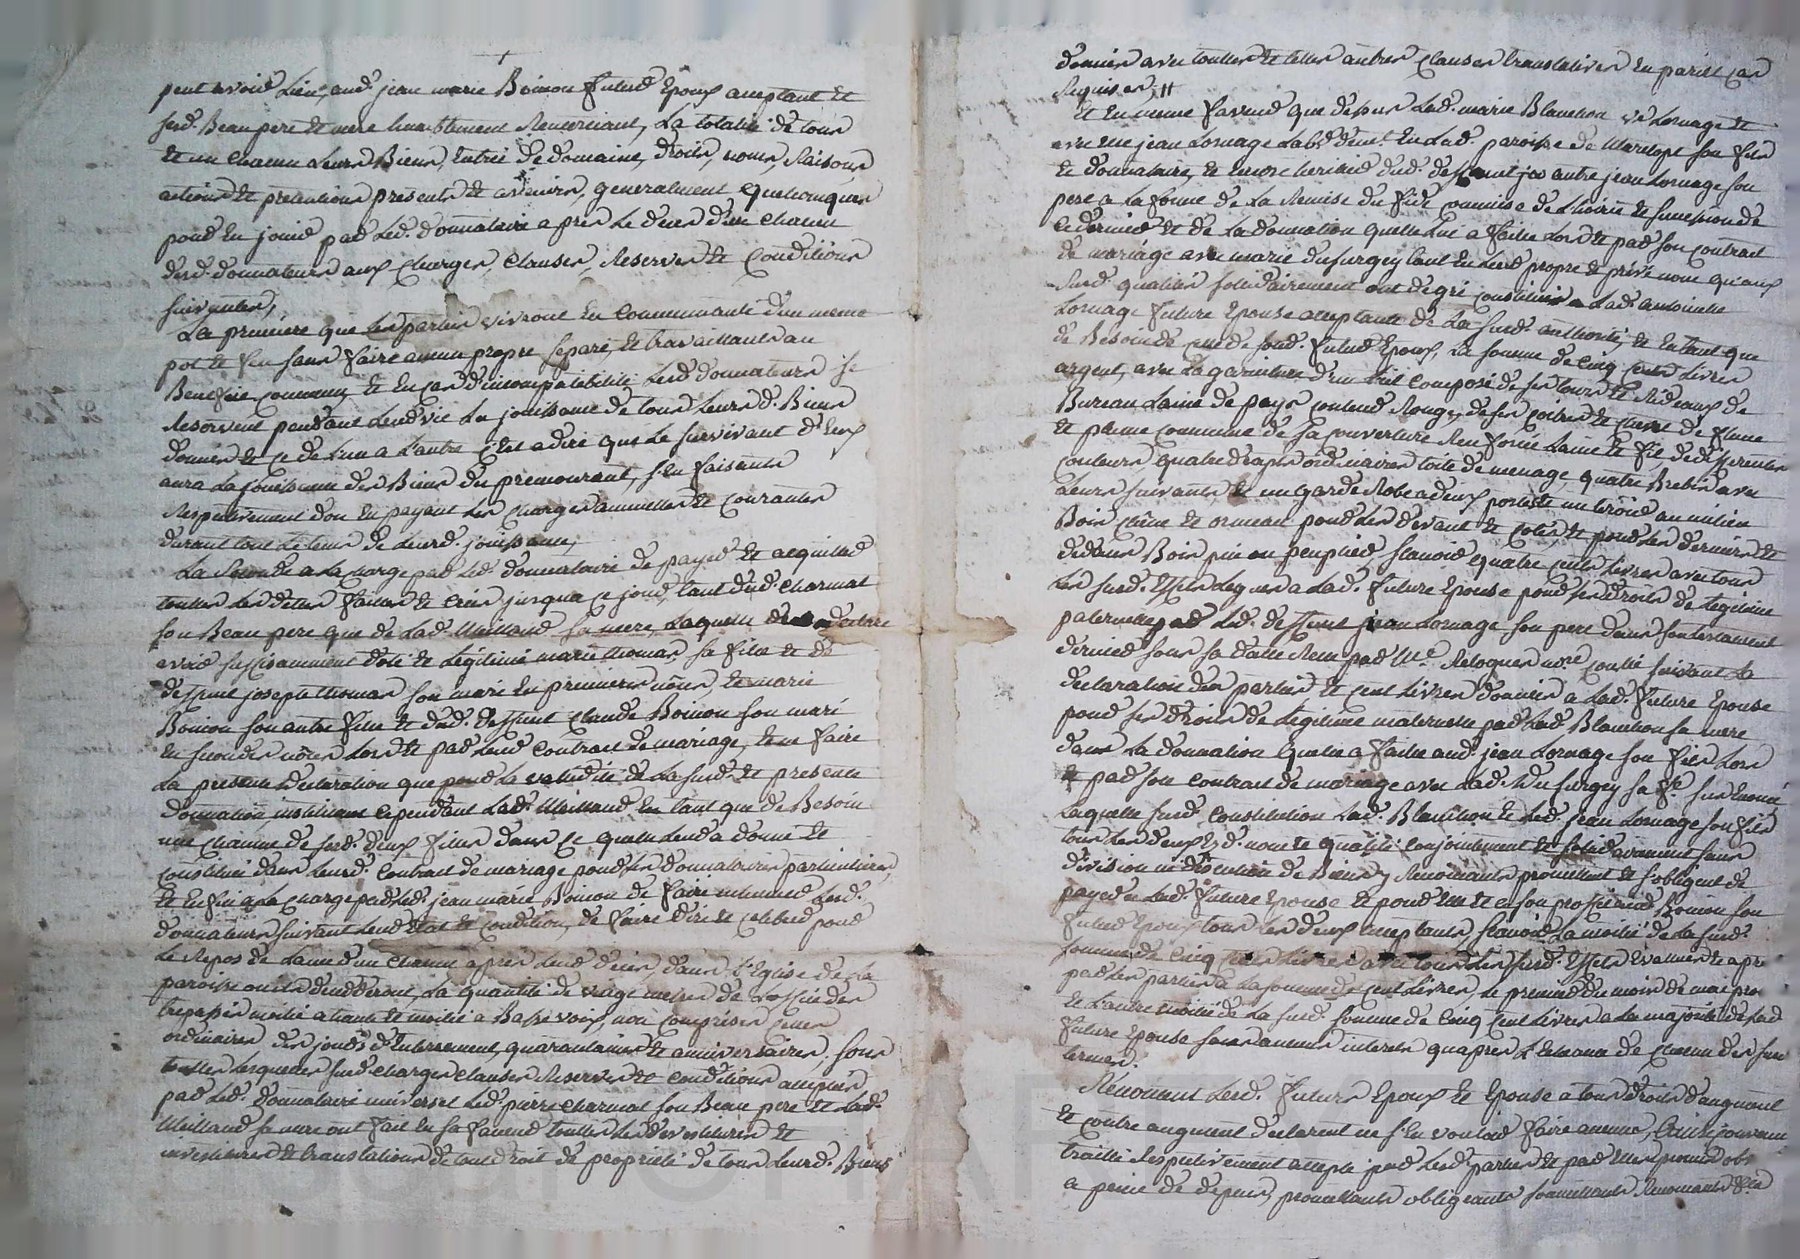 peut avoir Lieu, aud. jean marie Boinon futur Epoux acceptant et
sesd. Beau pere et mere humblement Remerciant, La totalité de tous
et un chacun Leurs Biens, Entrée de domaine, droits, noms, Raisons
actions et pretentions presents et avenirs, generalement quelconques
pour En jouir par Led. donnataire apres Le deces d'un chacun
desd. donnateurs aux charges, clauses, Reserves et Conditions
suivantes,
La premiere que Les parties vivront En Communauté d'un meme
pot et feu sans faire aucun propre separé, et travaillants au
Benefice commun, et En cas d'incompatibilité Lesd. donnateurs se
Reservent pendant Leur vie La jouissance de tous Leurs d. Biens
donnés et ce de L'un a L'autre C'est a dire que Le survivant d'Eux
aura La jouissance des Biens du premourant, s'en faisants
Respectivement don En payant Les charges annuelles et courantes
durant tout Le tems de Leurd. jouissance,
La Seconde a La charge par Led. donnataire de payer et acquitter
touttes Les dettes faites et crées jusqu'a ce jour, tant dud. Charmat
son Beau pere que de Lad. Maillaud sa mere, Laquelle declare
avoir suffisamment doté et Legitimé marie thomas sa fille et de
deffunt joseph thomas son mari En premieres nôces, et marie
Boinon son autre fille et dud. deffunt Claude Boinon son mari
en secondes nôces Lors et par Leur contrat de mariage, et ne faire
La presente declaration que pour La validité de La susd. et presente
donnation, instituant cependant Lad. Maillaud En tant que de Besoin
une chacune de sesd. deux filles dans ce qu'elle Leur a donné et
constitué dans Leursd. Contrat de mariage pour ses donnataires particulieres,
Et Enfin a La charge par Led. jean marie Boinon de faire inhumer Lesd.
donnateurs suivant Leur Etat et condition, de faire dire et celebrer pour
Le Repos de L'ame d'un chacun apres Leur deces, dans L'Eglise de La
paroisse ou ils decederont, La quantité de vingt messes de L'office des
trepassés moitié a haute et moitié a Basse voix, non comprises celles
ordinaires des jours d'Enterrement, quarantaines et anniversaires, sous
touttes Lesquelles susd. charges clauses Reserves et Conditions acceptées
par Led. donnataire universel Led. pierre Charmat son Beau pere et Lad.
Maillaud sa mere ont fait En sa faveur touttes Les devestitures et
investitures et translations de tout droit de proprieté de tous Leurd. Biens
donnés avec touttes et telles autres clauses translatives En pareil cas
Requises. //
Et En meme faveur que dessus Lad. marie Blanchon ve Lornage et
avec elle jean Lornage Labr demt. En Lad. paroisse de son fils
et donnataire, et encore heritier dud. deffunt autre jean Lornage son
pere a La forme de La Remise du fidei commise de L'hoirie et succession de
ce dernier et de La donnation qu'elle Lui a faitte Lors et par son contrat
de mariage avec marie dufurgey tant En Leur propre et privé nom qu'aux
susd. qualités solidairement ont de gré constitué a Lad. antoinette
Lornage future Epouse acceptante de La susd. authorité, et En tant que
de Besoin de celle de sond. futur Epoux, La somme de cinq cents Livres
argent, avec La garniture d'un Lit composé de ses tours et Rideaux de
Bureau Laine de pays couleur Rouge, de ses coitres et cussin de plume
et plume commune de sa couverture Laine et fil de differentes
couleurs, quatre draps ordinaires toile de menage, quatre Brebis avec
Leurs suivants, et un garde Robe a deux portes et un tiroir au milieu
Bois chêne et ormeau pour Les devant et cotés et pour Les derniers et
dedans Bois pin ou peuplier, scavoir quatre cents Livres avec tous
Les susd. Effets Legués a Lad. future Epouse pour ses droits de Legitime
paternelle par Led. deffunt jean Lornage son pere dans son testament
dernier sous sa datte Reçu par Me. notre Controllé suivant La
declaration des parties et cent Livres donnés a Lad. future Epouse
pour ses droits de Legitime maternelle par Lad. Blanchon sa mere
dans La donnation qu'elle a faitte aud. jean Lornage son fils Lors
et par son contrat de mariage avec Lad. dufurgey sa fe. sus Enoncé
Laquelle susd. Constitution Lad. Blanchon et Led. jean Lornage son fils
tous Les deux Esd. nom et qualité conjointement et solidairement sans
division ni discution de Biens y Renonçants promettent et s'obligent de
payer a Lad. future Epouse et pour Elle et a son proffit aud. Boinon son
futur Epoux tous Les deux acceptants, scavoir La moitié de La susd.
somme de Cinq cents Livres avec tous Les susd. Effets Evalués de apre
par Les parties a La somme de cent Livres, Le premier du mois de mai pro
et L'autre moitié de La susd. somme de Cinq Cent Livres a La majorité de Lad
future Epouse sans aucuns interets qu'apres L'Echeance de chacun des susd
termes.
Renoncent Lesd. futurs Epoux et Epouse a tous droits d'augment
et contre augment declarent ne s'En vouloir faire aucune,
traitté Respectivement accepté par Lesd. parties et par Elles promis obs
a peine de depens, promettants obligeants soumettants Renonçants &a